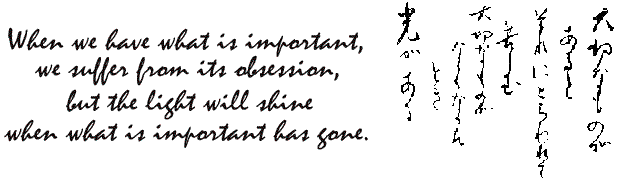 When we have what is important,
we suffer from its obsession,
but the light will shine
when what is important has gone.
大切なものが
あると
それにとらわれて
苦しむ
大切なものが
とき
光がある